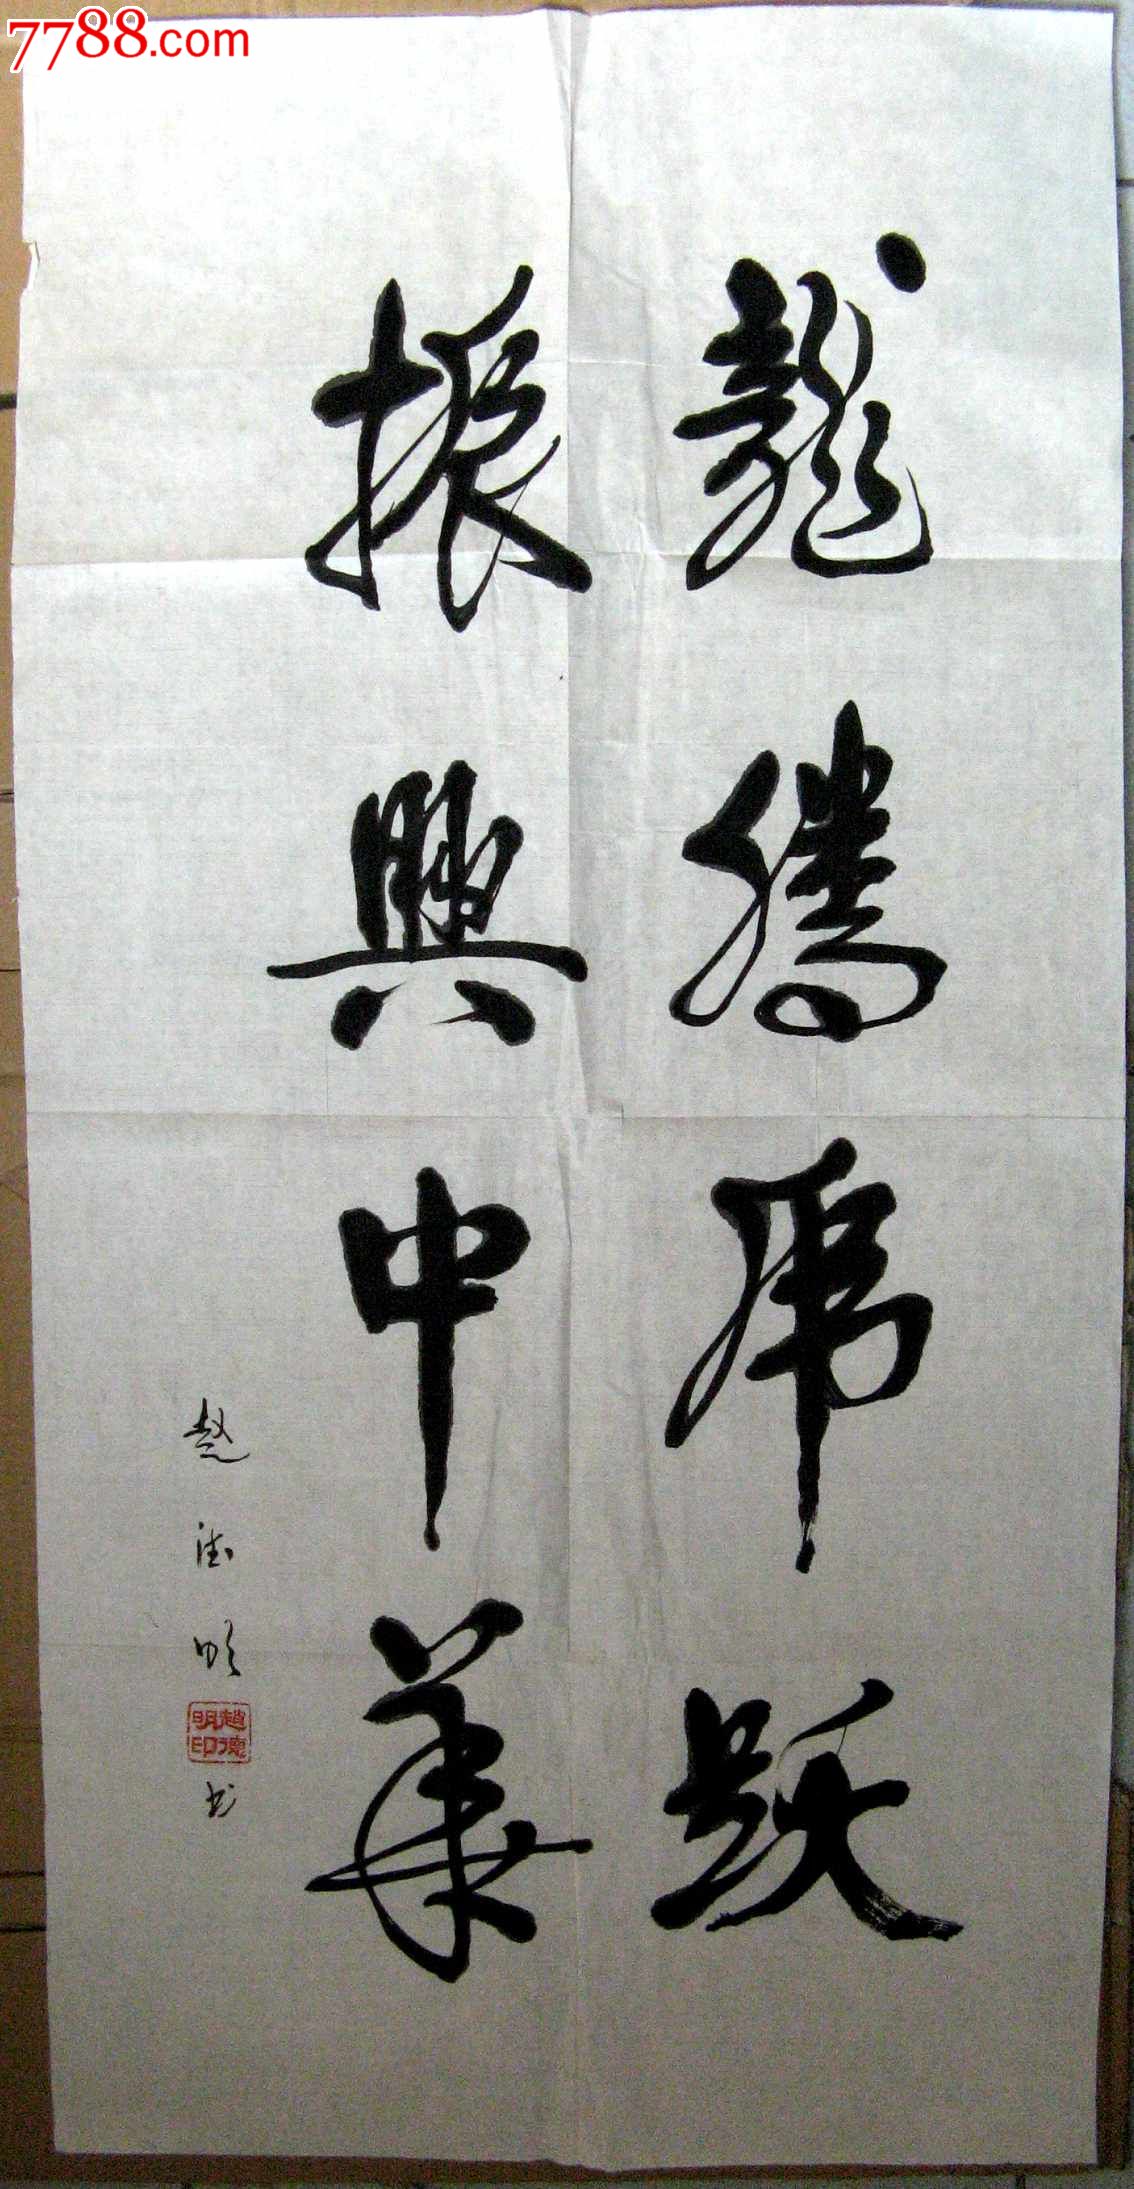 7788.com
龍騰虎躍
振興中華
趙德明书
趙德明印